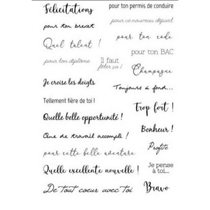 Félicitations
pour ton permis de conduire
pour ton brevet
pour ce nouveau départ
Quel talent !
pour ton code
pour ton diplôme
Il faut
fêter ça !
pour ton BAC
Champagne
Je croise les doigts
Toujours à fond...
Tellement fière de toi !
Trop fort !
Quelle belle opportunité !
Bonheur !
Que de travail accompli !
Profite
pour cette belle aventure
Je pense
à toi...
Quelle excellente nouvelle !
De tout coeur avec toi
Bravo